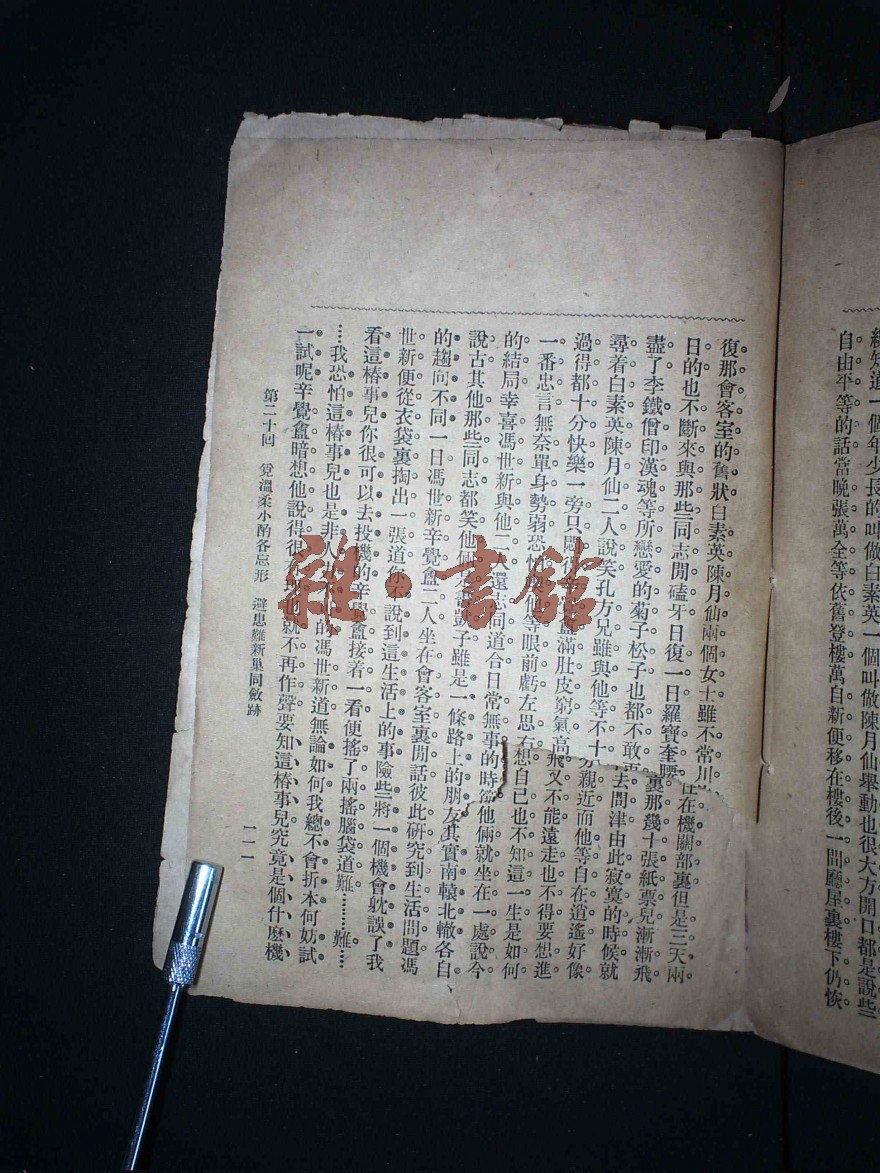 纔知道一個年少長的叫做白素英一個叫做陳月仙舉動也很大方開口都是說些
自由平等的話當晚張萬全等依舊登樓萬自新便移在樓後一間廳屋裏樓下仍恢
復那會客室的舊狀白素英陳月仙兩個女士雖不常川住在機關部裏但是三天兩
日的也不斷來與那些同志閒磕牙日復一日羅寶奎腰裏那幾十張紙票兒漸漸飛
盡了李鐵僧印漢魂等所戀愛的菊子松子也都不敢再去問津由此寂寞的時候就
尋着白素英陳月仙二人說笑孔方兄雖與他等不十分親近而他等自在逍遙好像
過得都十分快樂一旁只悶得辛覺盦滿肚皮窮氣高飛又不能遠走也不得要想進
一番忠言無奈單身勢弱恐怕與他等眼前虧左思右想自己也不知這一生是如何
的結局幸喜馮世新與他二人還志同道合日常無事的時節他倆就坐在一處說今
說古其他那些同志都笑他倆書頭子雖是一條路上的朋友其實南轅北轍各自
的趨向不同一日馮世新辛覺盦二人坐在會客室裏閒話彼此研究到生活問題馮
世新便從衣袋裏掏出一張道你不說到這生活上的事險些將一個機會躭誤了我
看這樁事兒你很可以去投機的辛覺盦接着一看便搖了兩搖腦袋道難………難……
……我恐怕這樁事兒也是非人的馮世新道無論如何我總不會折本何妨試
一試呢辛覺盦暗想他說得很有理也就不再作聲要知這樁事兒究竟是個什麼機
第二十回 覓溫柔小酌各忘形 避患難新巢同斂跡
一一一
雜·書館